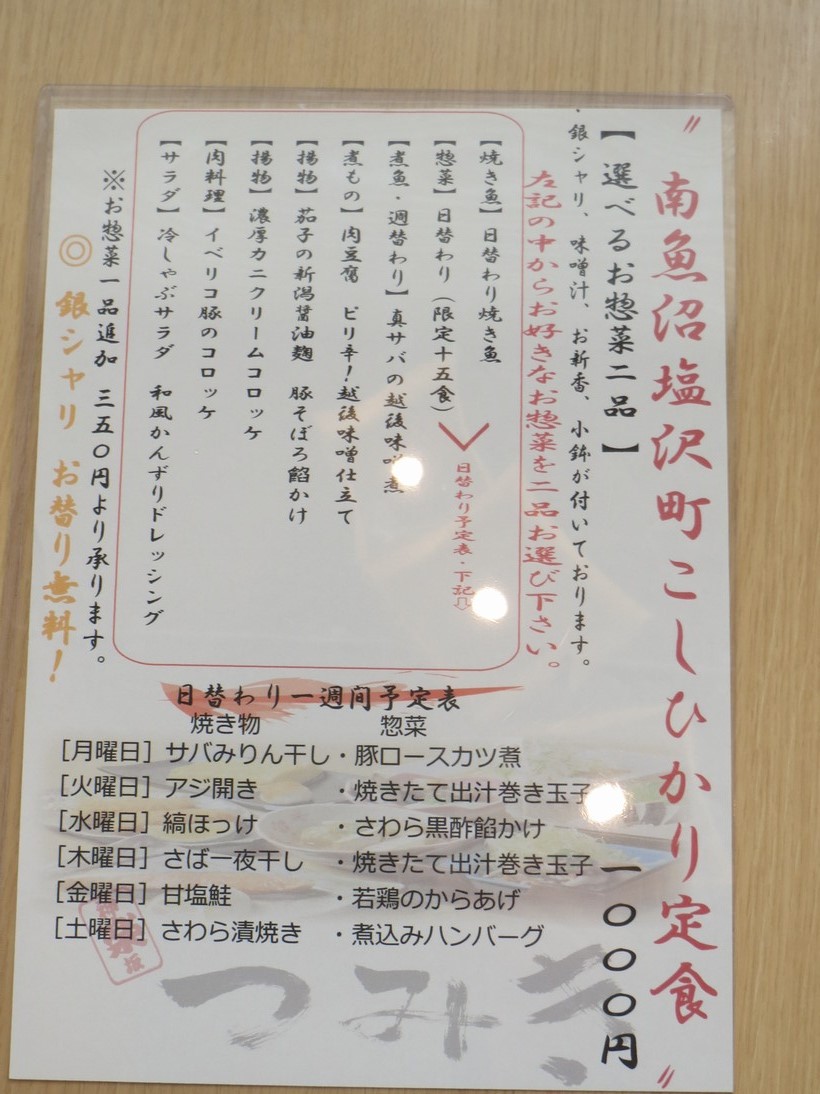 〃南魚沼塩沢町こしひかり定食〃
【選べるお惣菜二品】
一〇〇〇円
・銀シャリ、味噌汁、お新香、小鉢が付いております。
左記の中からお好きなお惣菜を二品お選び下さい。
【焼き魚】日替わり焼き魚
【惣菜】日替わり(限定十五食)
日替わり予定表・下記⇩
【煮魚・週替わり】真サバの越後味噌煮
【煮もの】肉豆腐 ピリ辛!越後味噌仕立て
【揚物】茄子の新潟醤油麹 豚そぼろ餡かけ
【揚物】濃厚カニクリームコロッケ
【肉料理】イベリコ豚のコロッケ
【サラダ】冷しゃぶサラダ 和風かんずりドレッシング
※お惣菜一品追加 三五〇円より承ります。
◎銀シャリ お替り無料!
日替わり一週間予定表
焼き物 惣菜
[月曜日]サバみりん干し・豚ロースカツ煮
[火曜日]アジ開き ・焼きたて出汁巻き玉子
[水曜日]縞ほっけ ・さわら黒酢餡かけ
[木曜日]さば一夜干し ・焼きたて出汁巻き玉子
[金曜日]甘塩鮭 ・若鶏のからあげ
[土曜日]さわら漬焼き ・煮込みハンバーグ
つみき